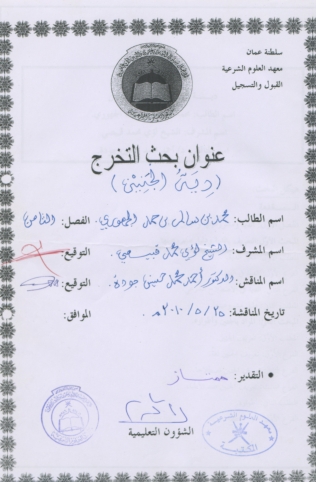 سلطنة عمان
معهد العلوم الشرعية
القبول والتسجيل
عنوان بحث التخرج
(دية الجنين)
اسم الطالب: محمد بن سالم بن حمد الجهوري. الفصل: الثامن
اسم المشرف: الشيخ لؤي محمد قبيصي. التوقيع:
اسم المناقش: الدكتور أحمد محمد حسين جودة. التوقيع:
تاريخ المناقشة: ٢٥ / ٥ / ٢٠١٠م. الموافق:
• التقدير: ممتاز
الشؤون التعليمية
معهد العلوم الشرعية